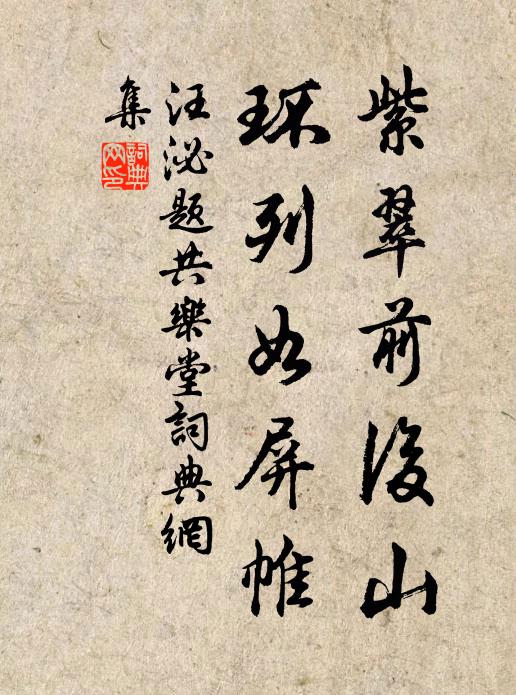 紫翠前後山
环列如屏帷
汪泌题共樂堂詞典網
集
詞典
网印